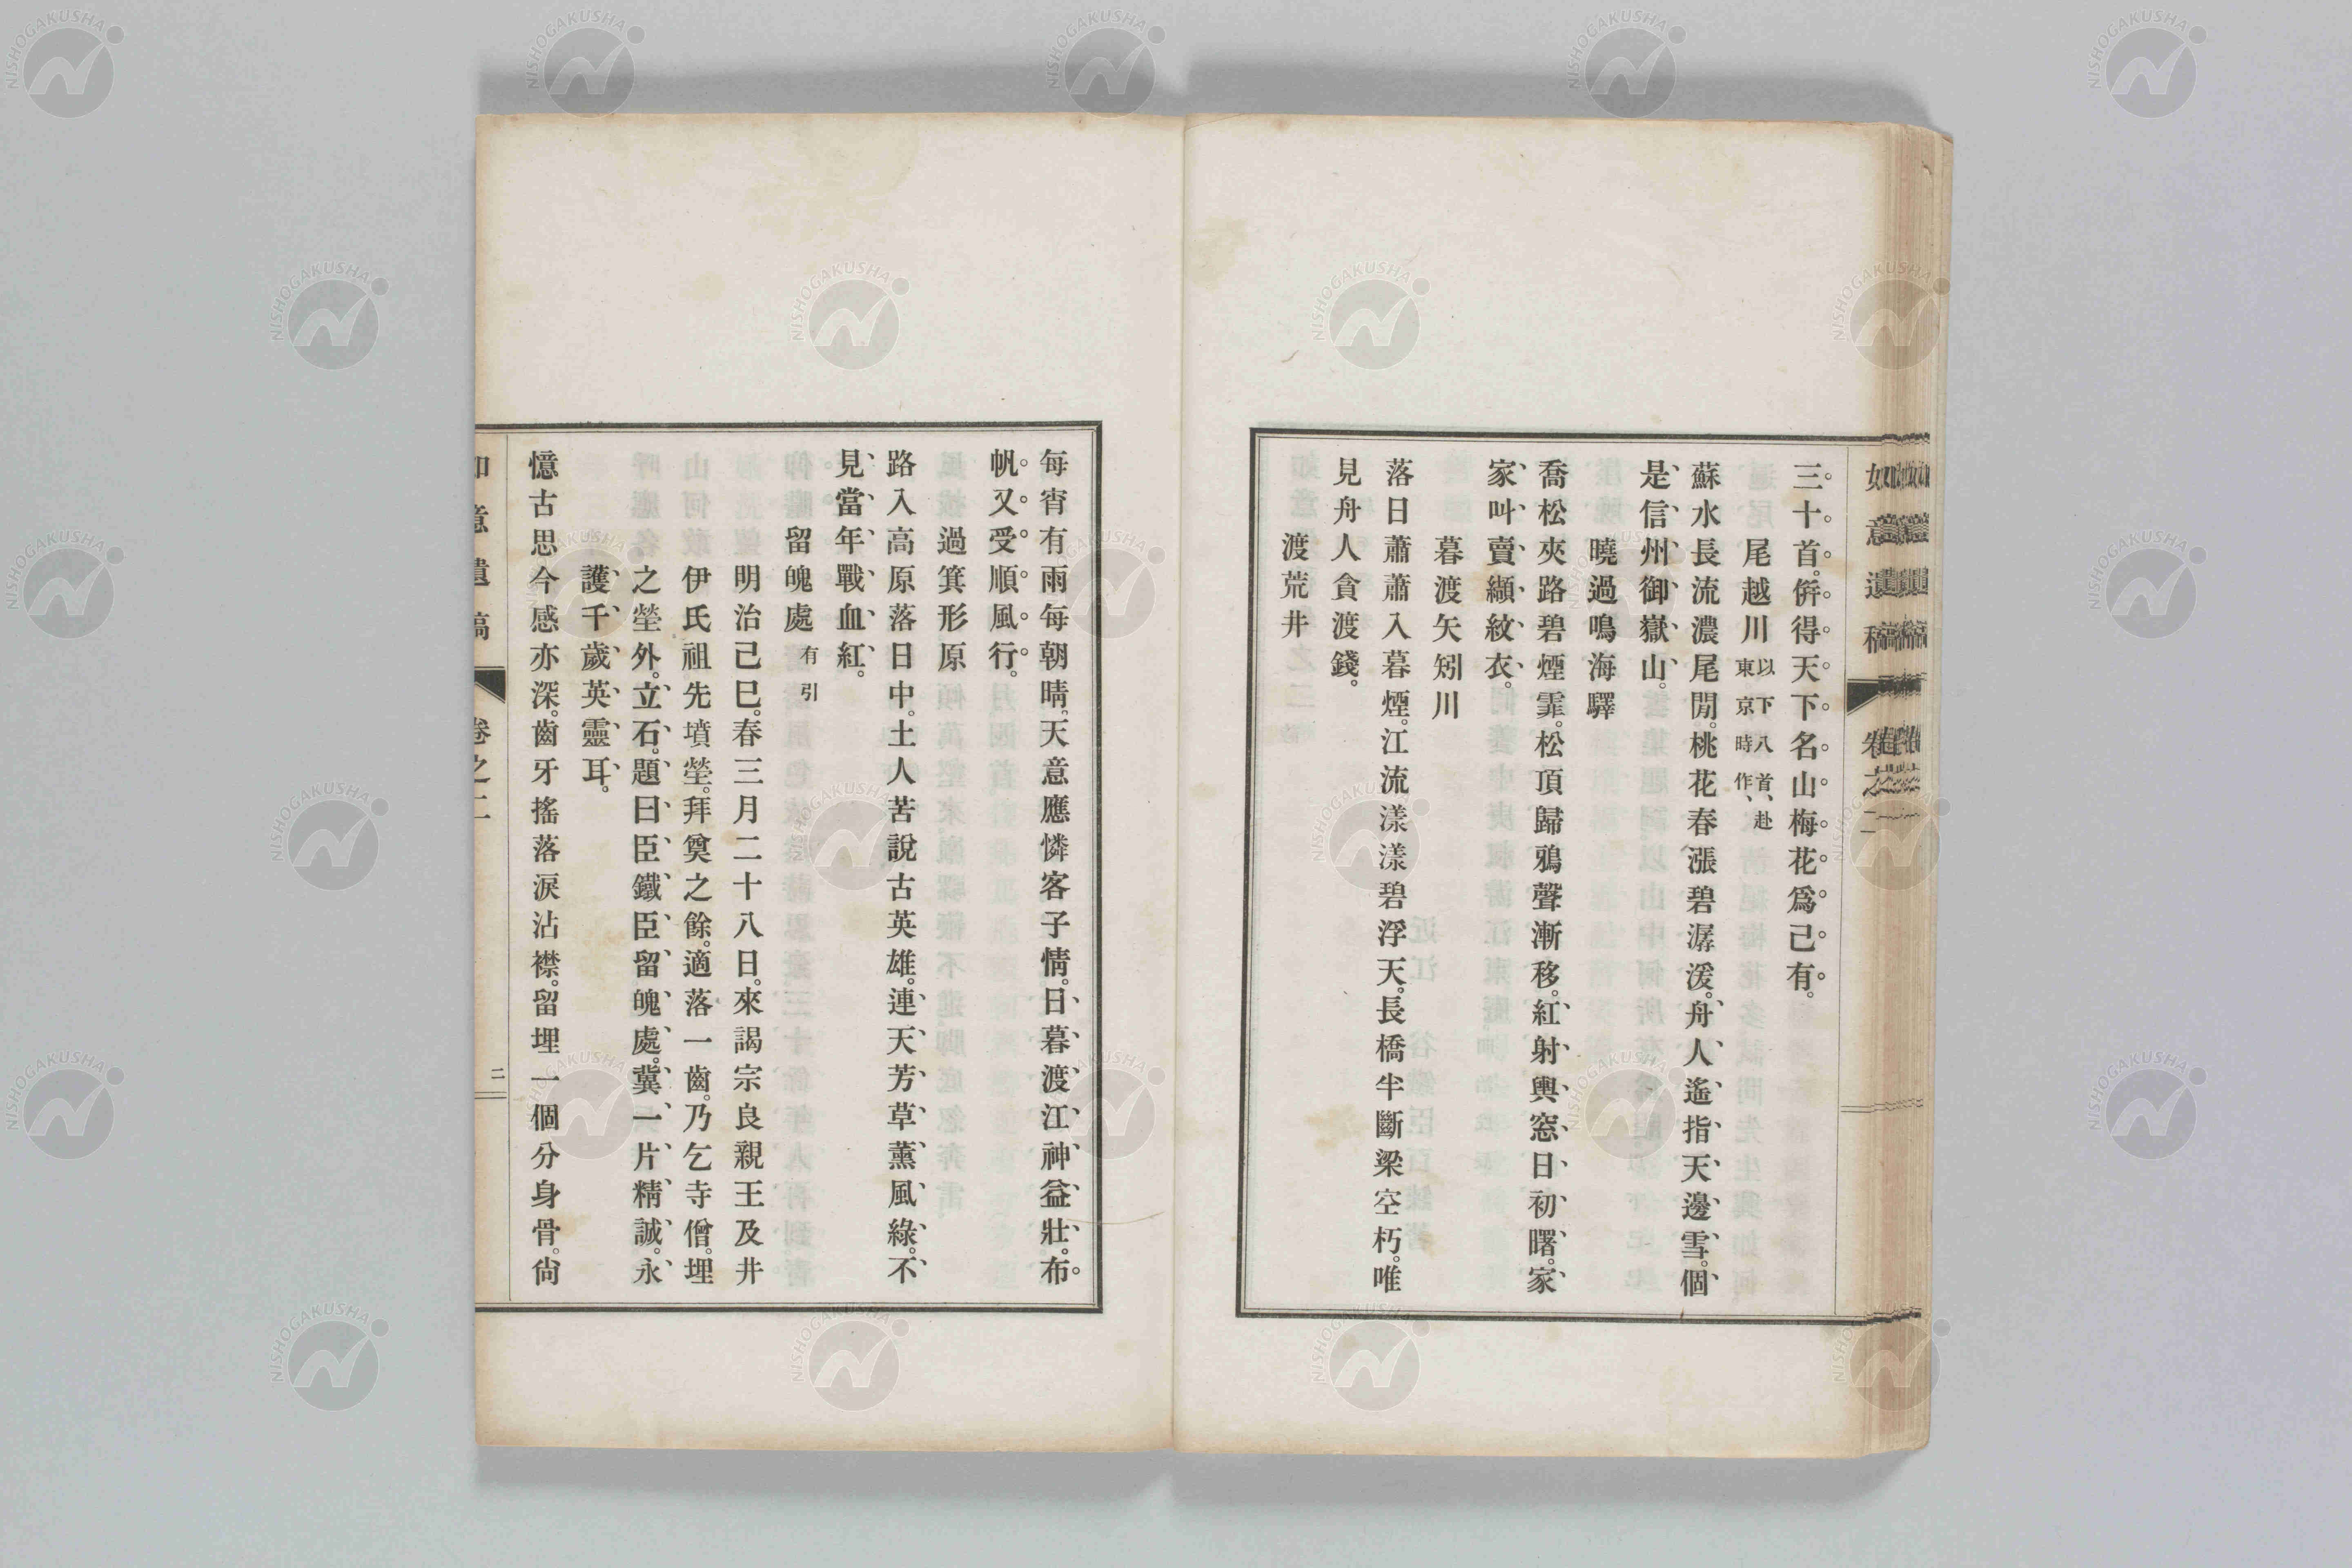 三十首。倂得天下名山梅花爲己有。
尾越川 以下八首、赴東京時作、
蘇水長流濃尾間。桃花春漲碧潺湲。舟人遙指天邊雪。個
是信州御嶽山。
曉過鳴海驛
喬松夾路碧煙霏。松頂歸鴉聲漸移。紅射輿窓日初曙。家
家叫賣纈紋衣。
暮渡矢矧川
落日蕭蕭入暮煙。江流漾漾碧浮天。長橋半斷梁空朽。唯
見舟人貪渡錢。
渡荒井
每宵有雨每朝晴。天意應憐客子情。日暮渡江神益壯。布
帆又受順風行。
過箕形原
路入高原落日中。土人苦說古英雄。連天芳草薰風綠。不
見當年戰血紅。
留魄處 有引
明治己巳。春三月二十八日。來謁宗良親王及井
伊氏祖先墳塋。拜奠之餘。適落一齒。乃乞寺僧。埋
之塋外。立石。題曰臣鐵臣留魄處。冀一片精誠。永
護千歲英靈耳。
憶古思今感亦深。齒牙搖落淚沾襟。留埋一個分身骨。尙
如意遺稿 卷之二 二